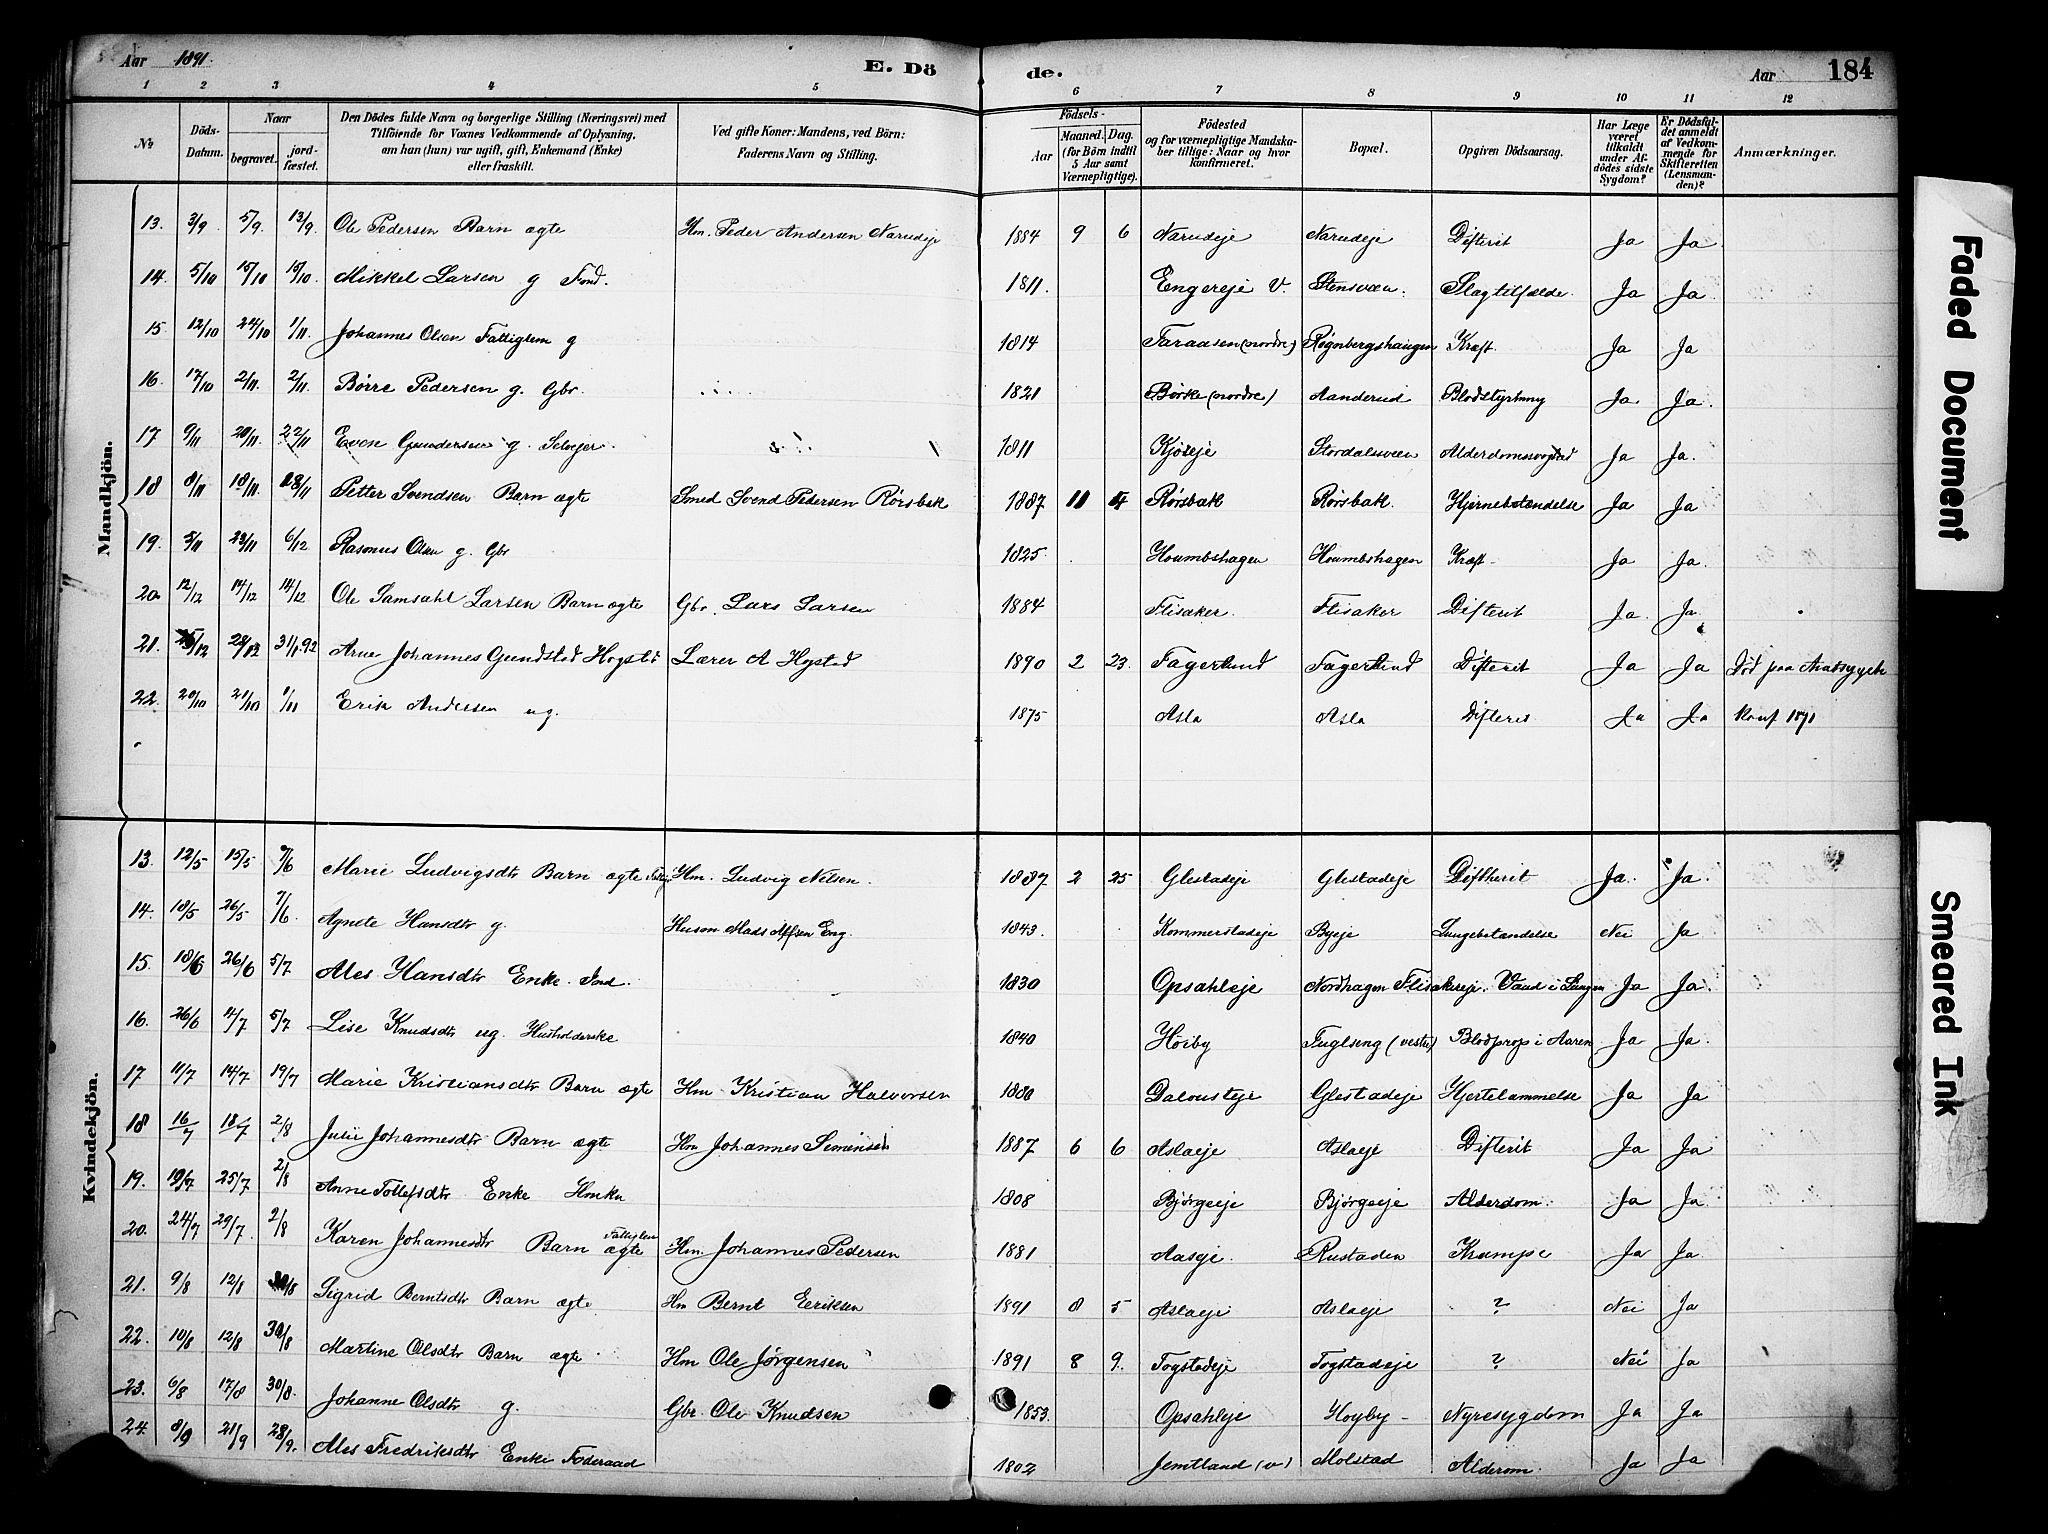 Aar 1891. E. Dö de. Aar 184
1 2 3 4 5 6 7 8 9 10 11 12
№ Döds-Datum. Naar begravet. jordfæstet. Den Dödes fulde Navn og borgerlige Stilling (Næringsvei) med Tilföiende for Voxnes Vedkommende af Oplysning, om han (hun) var ugift, gift, Enkemand (Enke) eller fraskilt. Ved gifte Koner: Mandens, ved Börn: Faderens Navn og Stilling. Födsels- Aar Maaned. Dag. (for Börn indtil 5 Aar samt Værnepligtige). Födested og for værnepligtige Mandskaber tillige: Naar og hvor konfirmeret. Bopæl. Opgiven Dödsaarsag. Har Læge været tilkaldt under Afdödes sidste Sygdom? Er Dödsfaldet anmeldt af Vedkommende for Skifteretten (Lensmanden)? Anmærkninger.
Mandkjön.
13. 3/9 5/9 13/9 Ole Pedersen Barn ægte Hm. Peder Andersen Narudeje 1884 9 6 Narudeje Narudeje Difterit Ja Ja
14. 5/10 15/10 15/10 Mikkel Larsen g Fond. 1811. Engereje V. Stensveen. Slagtilfælde. Ja Ja
15 12/10 22/10 1/11 Johannes Olsen Fattiglem g 1814 Taraasen (nordre) Røgnbergshaugen Kræft. Ja Ja
16. 17/10 2/11 2/11 Børre Pedersen g. Gbr. 1821 Børke (nordre) Aanderud Blodstyrtning Ja Ja.
17 9/11 20/11 22/11 Even Gundersen g. Selvejer. 1811 Kjøseje Stordalsveen Ja Ja.
18 8/11 18/11 18/11 Petter Svendsen Barn ægte Smed Svend Pedersen Rørsbak 1887 11 4 Rørsbak Rørsbak. Hjernebetændelse Ja Ja
19. 5/11 23/11 6/12 Rasmus Olsen g. Gbr 1825. Houmbshagen Houmbshagen Kræft Ja Ja.
20. 12/12 14/12 14/12 Ole Samsahl Larsen Barn ægte Gbr. Lars Larsen 1884 Flisaker. Flisaker Difterit Ja. Ja
21. 28/12 31/1 92 Arne Johannes Gundstad Hogstd Lærer A Hogstad 1890 2 23. Fagerlund Fagerlund Difterit Ja Ja Død paa
22. 20/10 21/10 1/11 Erik Andersen ug. 1875 Asla Asla Difteris Ja Ja Konf 1891
Kvindekjön.
13. 12/5 15/5 7/6 Marie Ludvigsdtr Barn ægte Hm. Ludvig Nilsen. 1887 2 25 Glestadeje Glestadeje Diftherit Ja. Ja.
14. 18/5 26/5 7/6 Agnete Hansdtr g. Husm Mads Eng. 1843. Kommerstadeje Byeje Lungebetændelse Nei Ja
15. 18/6 26/6 5/7 Ales Hansdtr Enke. Ind. 1830 Opsahleje Nordhagen Flisakereje. Vand i Lungen Ja Ja.
16. 26/6 4/7 5/7 Lise Knudsdtr ug. Husholderske 1840 Høiby Fuglseng (vester) Blodprop i Aaren Ja Ja.
17 11/7 14/7 19/7 Marie Kristiansdtr Barn ægte Hm Kristian Halvorsen 1880 Dalousteje Glestadeje Hjertelammelse Ja Ja
18 16/7 18/7 2/8 Julie Johannesdtr Barn ægte Hm Johannes Simensen 1887 6 6 Aslaeje Aslaeje Difterit Ja Ja
19. 19/7 25/7 2/8 Anne Tollefsdtr Enke Hmke 1808 Bjørgeeje Bjørgeeje Alderdom. Ja Ja.
20. 24/7 29/7. 2/8 Karen Johannesdtr Barn Fattiglem ægte Hm. Johannes Pedersen 1881 Aaseje. Rustaden Krampe Ja Ja.
21. 9/8 12/8 30/8 Sigrid Berntsdtr Barn ægte Hm Bernt Eeriksen 1891 8 5 Aslaeje Aslaeje ? Nei Ja
22. 10/8 12/8 30/8 Martine Olsdtr Barn ægte Hm Ole Jørgensen 1891 8 9. Togstadeje Togstadeje ? Nei Ja
23. 6/8 17/8 30/8. Johanne Olsdtr g. Gbr. Ole Knudsen 1853. Opsahleje Høyby Nyresygdom Ja Ja
24. 8/9 21/9 28/9. Ales Fredriksdtr Enke Føderaad 1802 Jemtland (v) Molstad Alderom. Ja Ja
Faded Document
Smeared Ink